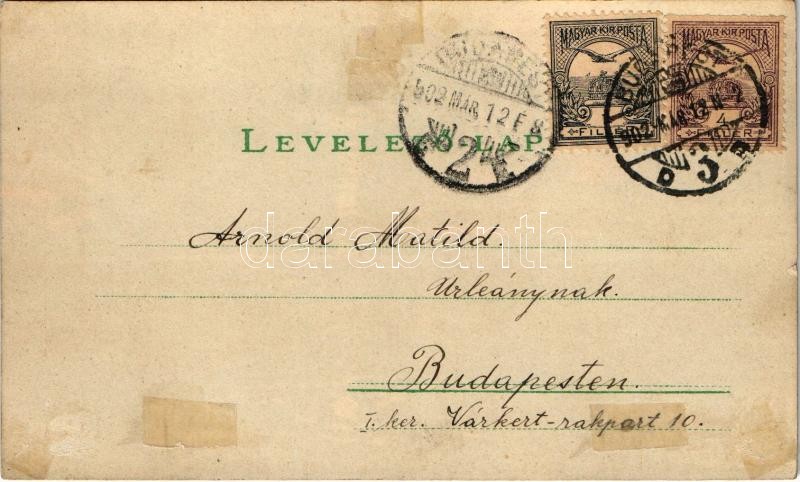 MAGYAR KIR. POSTA
MAGYAR KIR. POSTA
2
2
FILLÉR
4
BUDAPEST
902 MÁR. 12 F 8
2
BUDAPEST
902 MÁR. 12 N 2
D 3 B
LEVELEZŐ LAP
darabanth
Arnold Matild.
Urleánynak.
Budapesten.
I. ker. Várkert-rakpart 10.